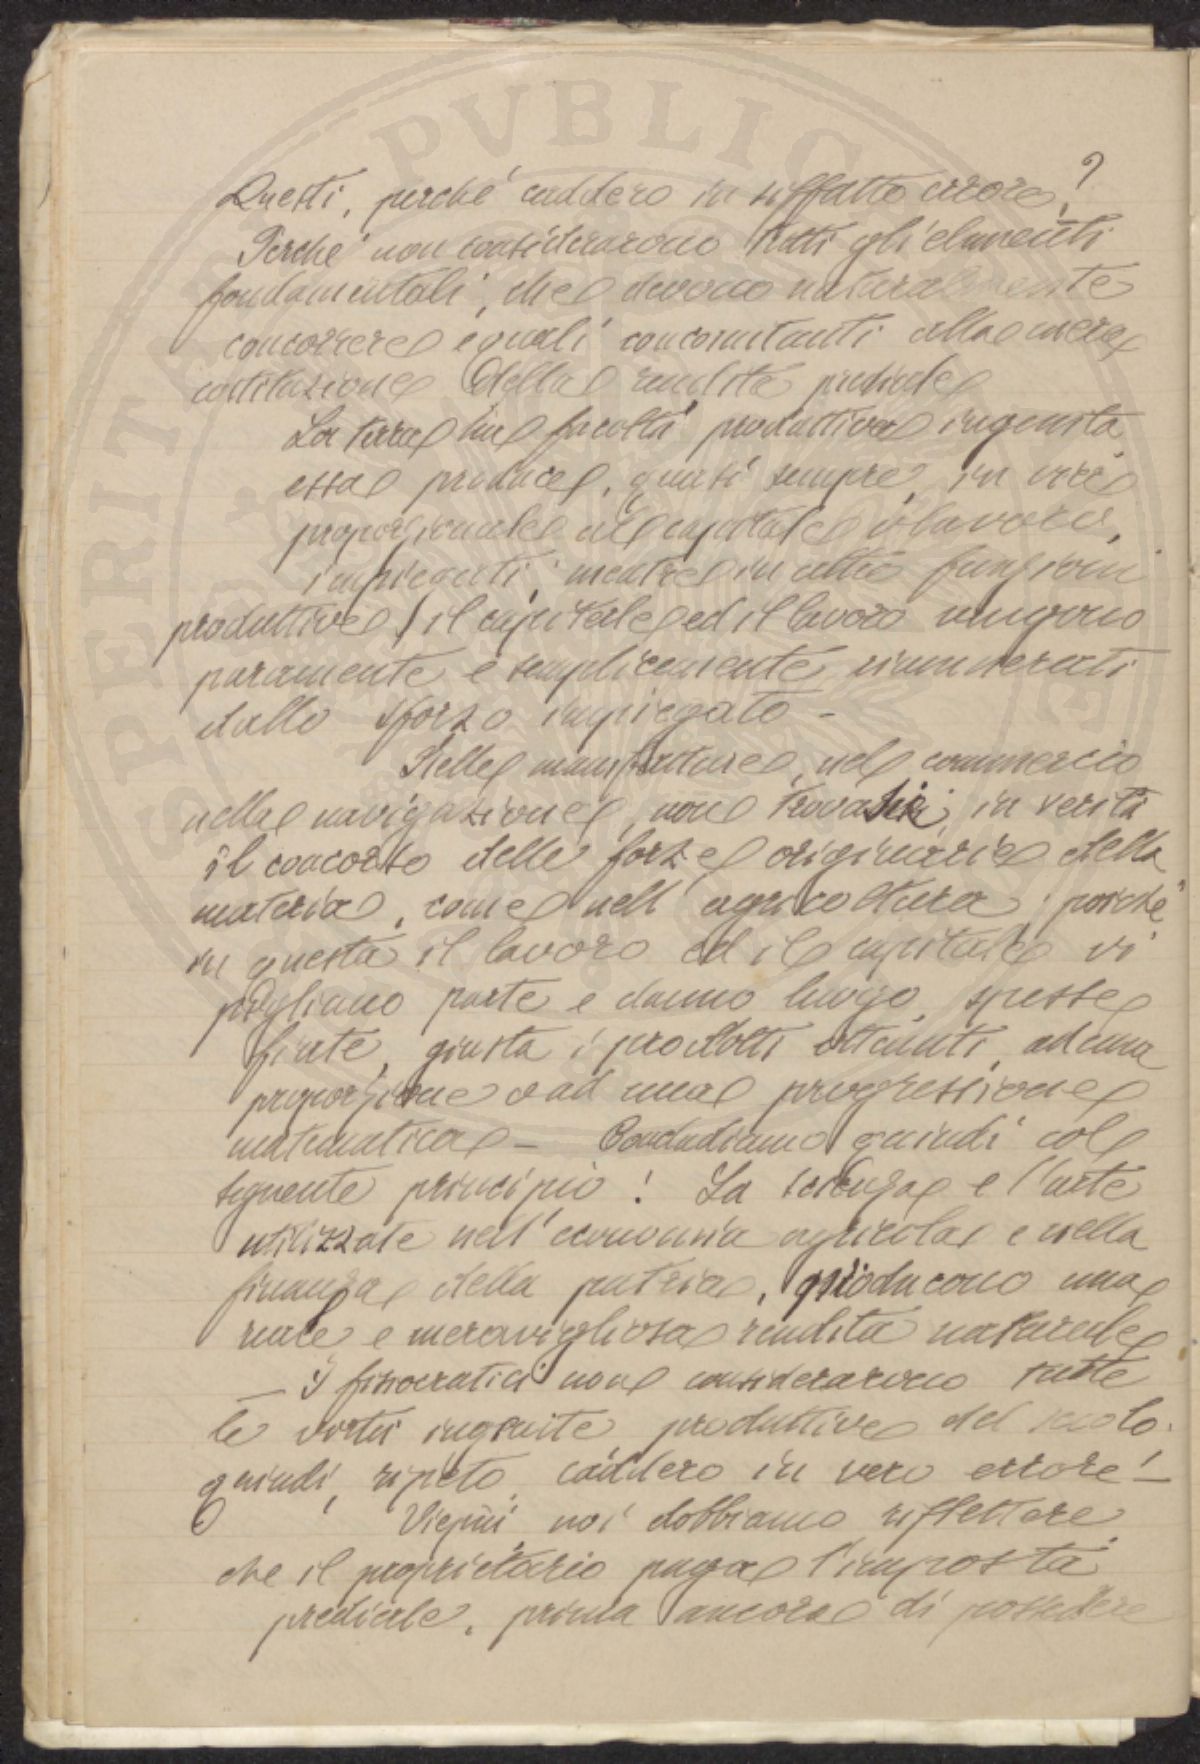 Questi, perché caddero in siffatto errore?
Perché non considerarono tutti gli elementi
fondamentali, che devono naturalmente
concorrere eguali concomitanti alla mera
costituzione della rendita prediale
La terra ha facoltà produttiva ingenita,
essa produce, quasi sempre, in
proporzionale al capitale o lavoro,
impiegati; mentre in altre funzioni
produttive, il capitale ed il lavoro vengono
puramente e semplicemente rimunerati
dallo sforzo impiegato -
Nelle manifatture, nel commercio
nella navigazione, non trovasi, in verità
il concorso delle forze originarie della
materia, come nell'agricoltura; poiché
in questa il lavoro ed il capitale vi
pigliano parte e danno luogo, spesse
fiate, giusta i prodotti ottenuti, ad una
proporzione o ad una progressione
matematica - Concludiamo quindi col
seguente principio: La scienza e l'arte
utilizzate nell'economia agricola e nella
finanza della patria, producono una
reale e meravigliosa rendita naturale
- I fisiocratici non considerarono tutte
le virtù ingenite, produttive del suolo.
quindi, ripeto, caddero in vero errore! -
Viepiù noi dobbiamo riflettere,
che il proprietario paga l'imposta
prediale, prima ancora di possedere
SPERITATEM PVBLIC